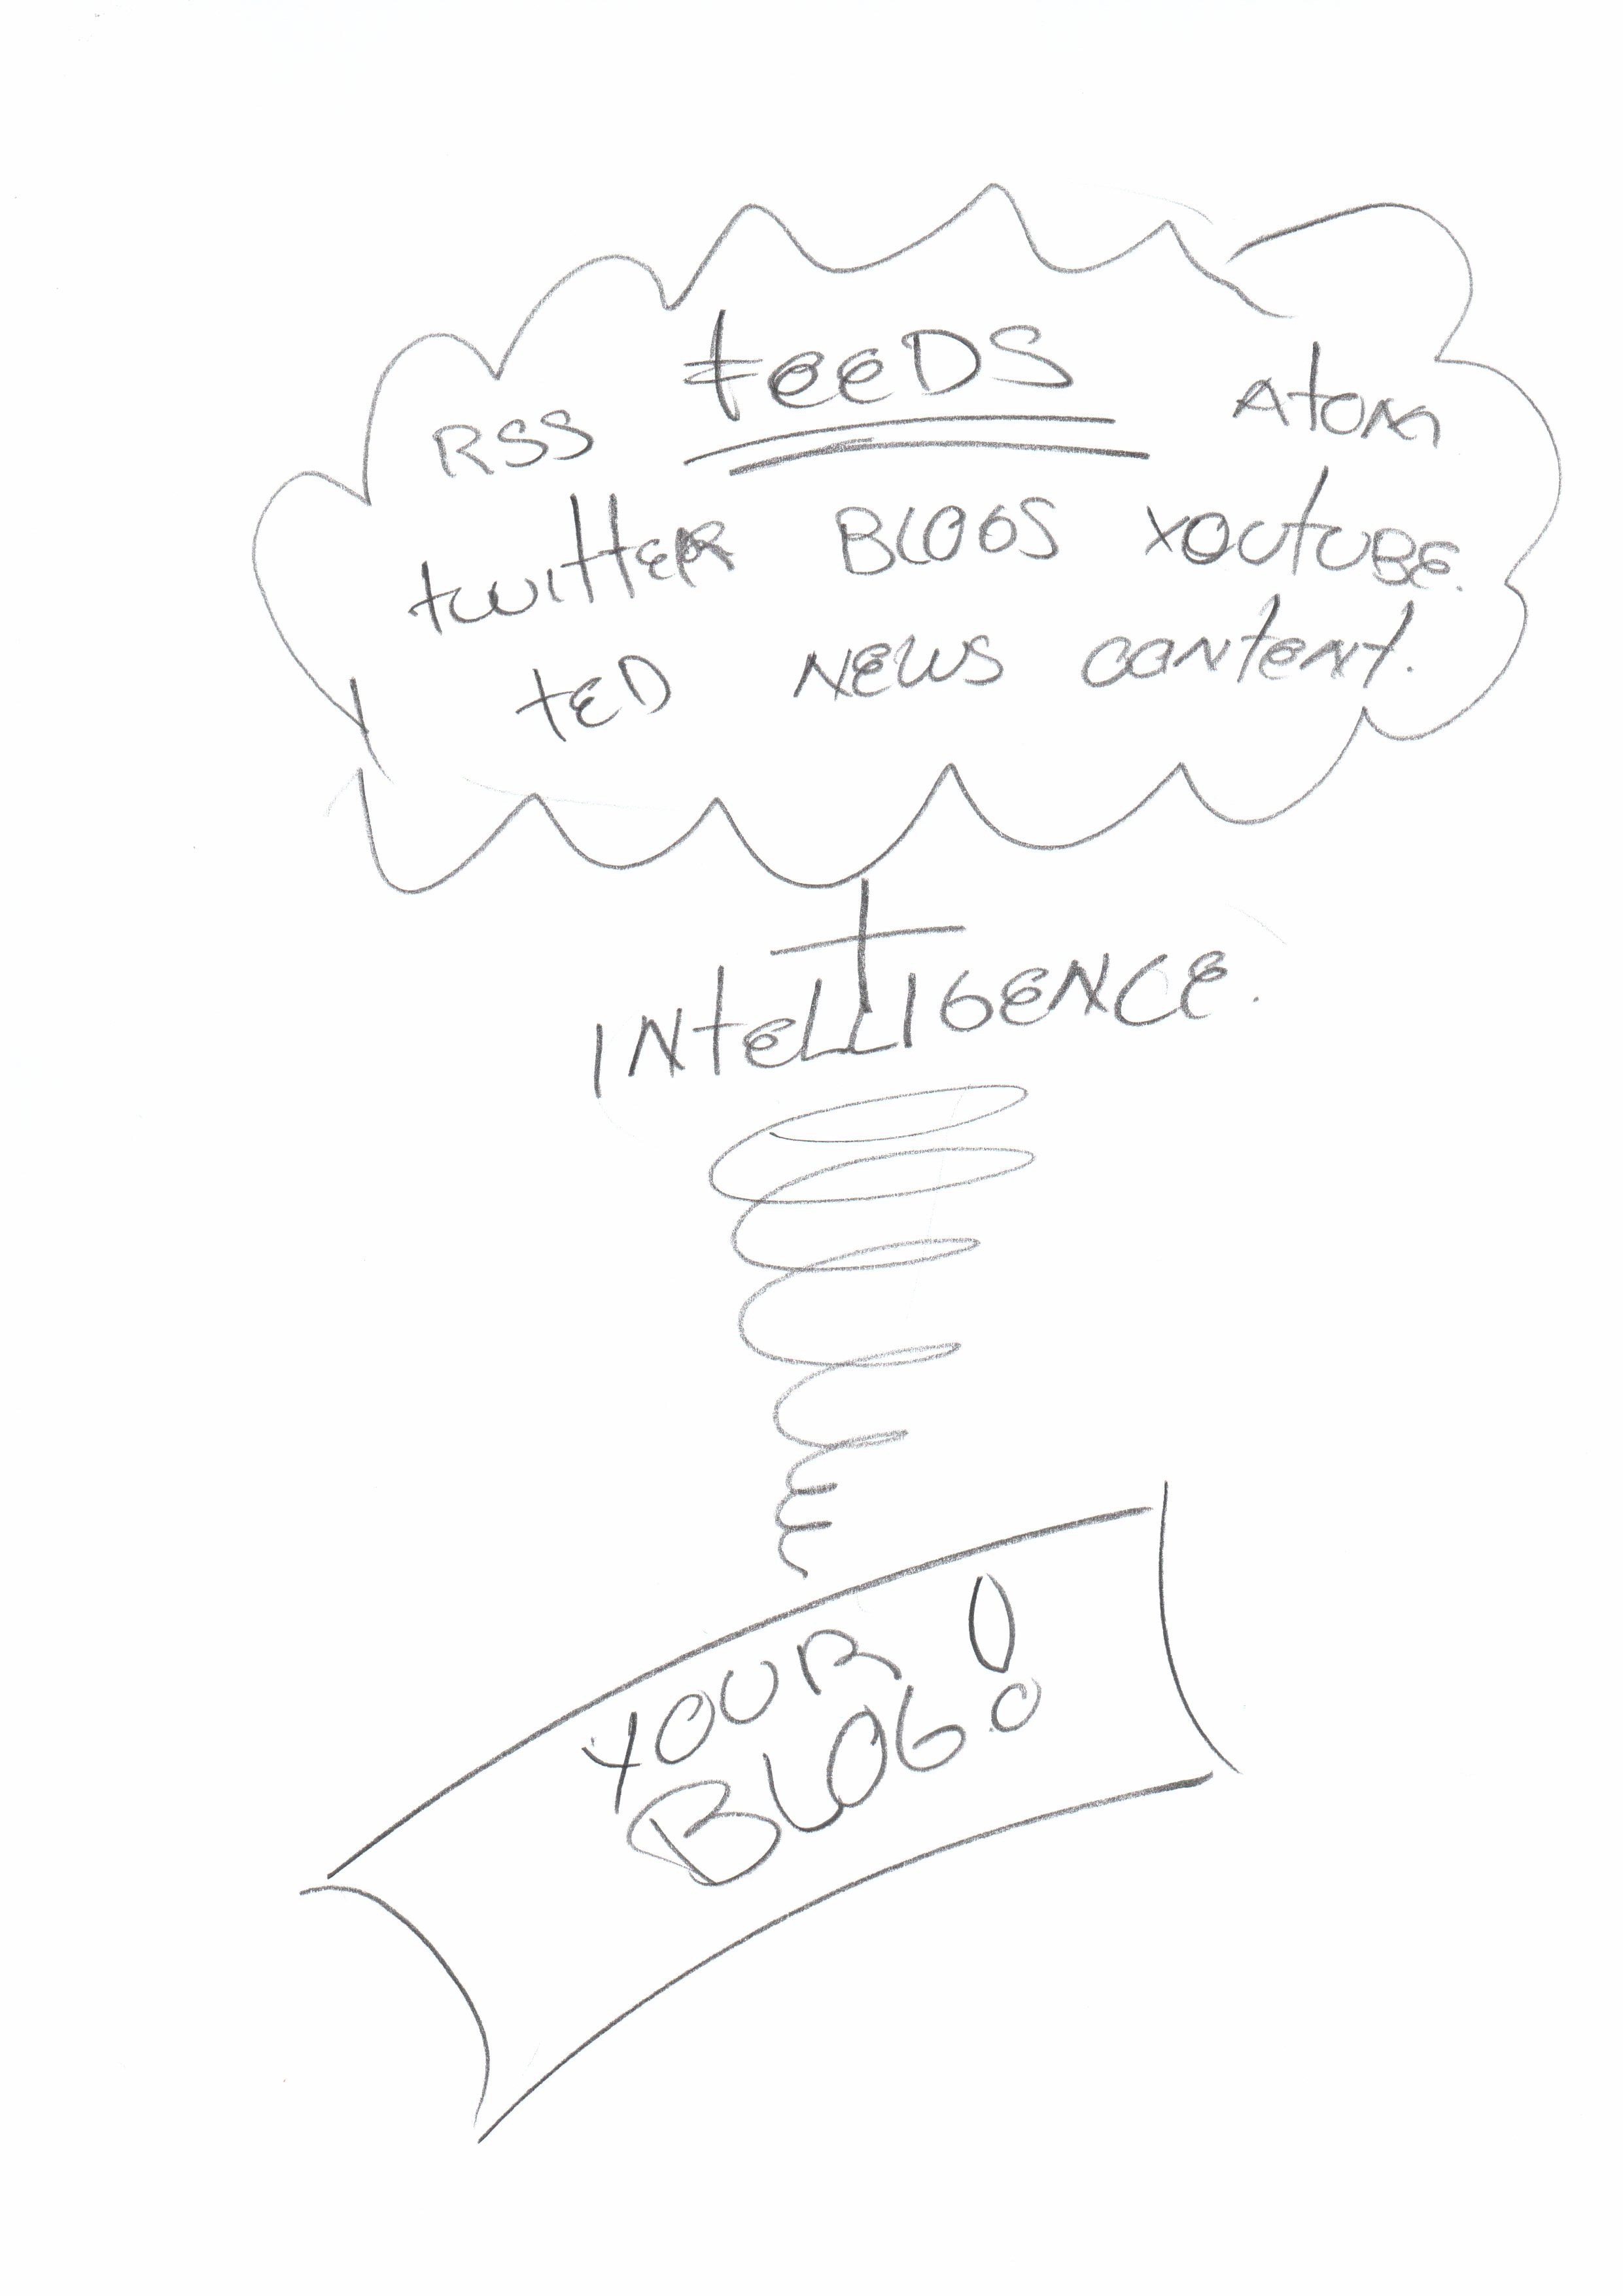 FEEDS
RSS ATOM
TWITTER BLOGS YOUTUBE.
TED NEWS CONTENT.
+
INTELLIGENCE.
YOUR
BLOG!